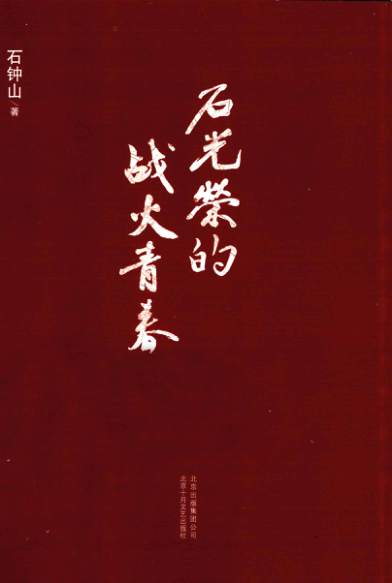 石光榮的
战火青春
石钟山 著
北京出版集团公司
北京十月文艺出版社